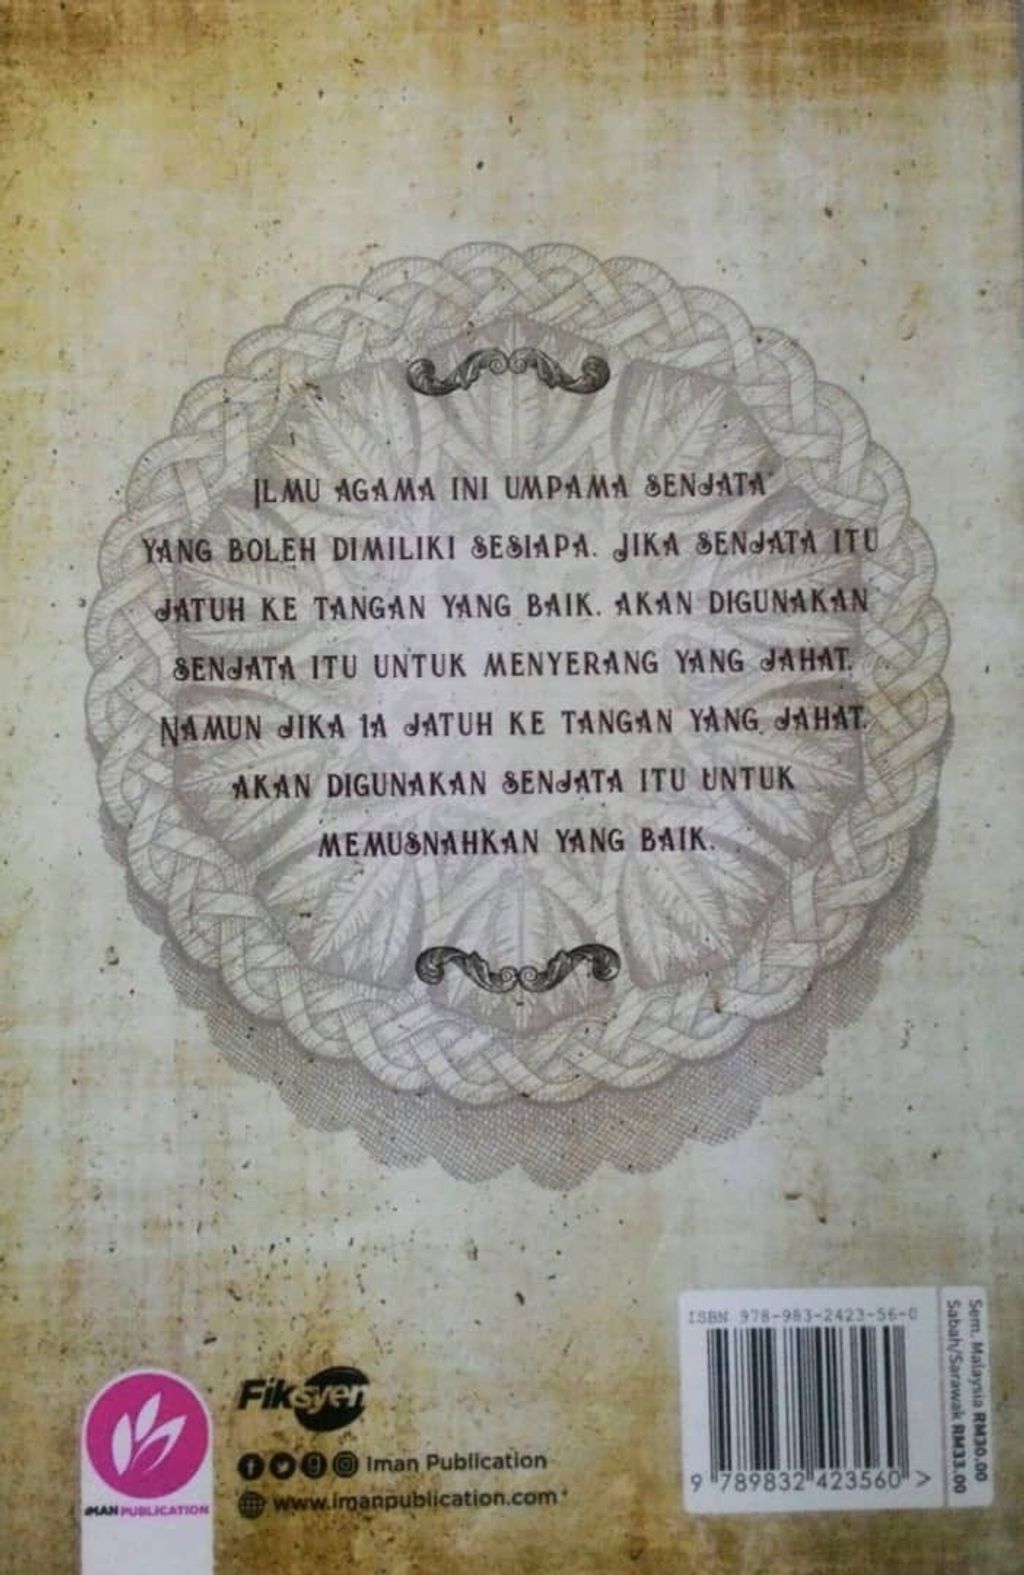 ILMU AGAMA INI UMPAMA SENJATA
YANG BOLEH DIMILIKI SESIAPA. JIKA SENJATA ITU
JATUH KE TANGAN YANG BAIK, AKAN DIGUNAKAN
SENJATA ITU UNTUK MENYERANG YANG JAHAT.
NAMUN JIKA IA JATUH KE TANGAN YANG JAHAT,
AKAN DIGUNAKAN SENJATA ITU UNTUK
MEMUSNAHKAN YANG BAIK.
ISBN 978-983-2423-56-0
9 789832 423560 >
Sem. Malaysia RM30.00
Sabah/Sarawak RM33.00
Fiksyen
Iman Publication
www.imanpublication.com
IMAN PUBLICATION